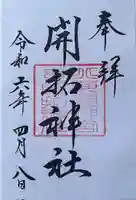 奉拝
開拓神社
令和六年四月八日